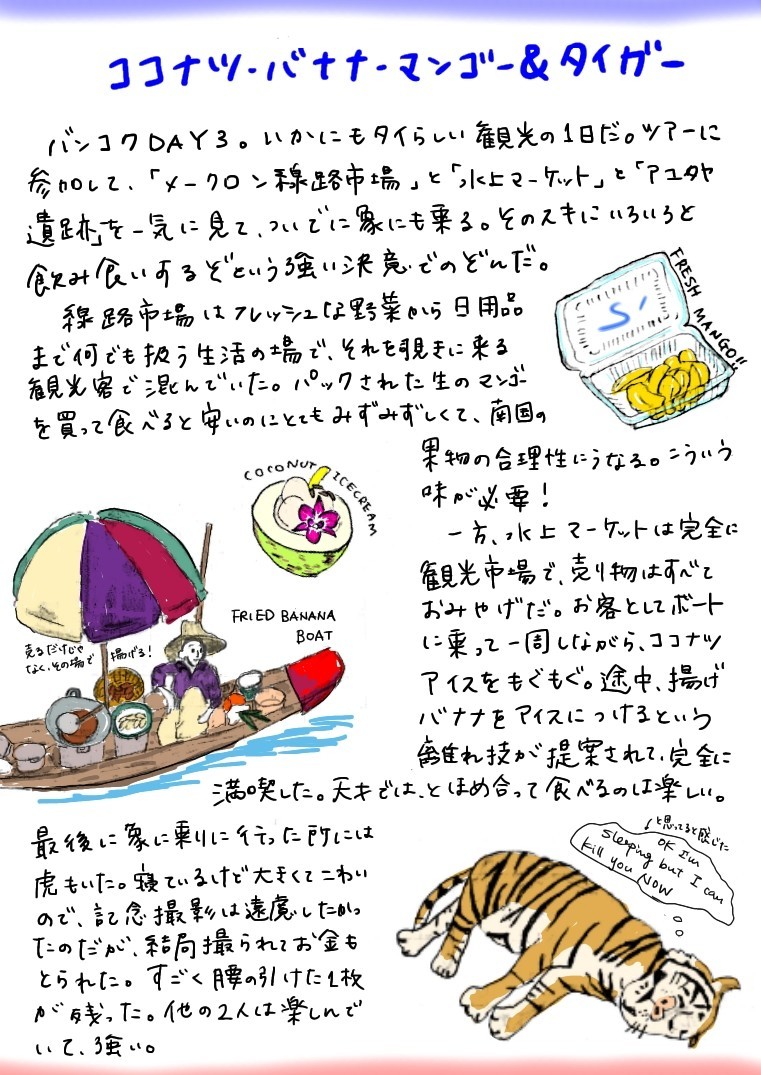 ココナツ・バナナ・マンゴー&タイガー
バンコクDAY3。いかにもタイらしい観光の1日だ。ツアーに
参加して、「メークロン線路市場」と「水上マーケット」と「アユタヤ
遺跡」を一気に見て、ついでに象にも乗る。そのスキにいろいろと
飲み食いするぞという強い決意でのぞんだ。
線路市場はフレッシュな野菜から日用品
まで何でも扱う生活の場で、それを覗きに来る
観光客で混んでいた。パックされた生のマンゴー
を買って食べると安いのにとてもみずみずしくて、南国の
果物の合理性にうなる。こういう
味が必要!
FRESH MANGO!!
COCONUT ICECREAM
一方、水上マーケットは完全に
観光市場で、売り物はすべて
おみやげだ。お客としてボート
に乗って一周しながら、ココナツ
アイスをもぐもぐ。途中、揚げ
バナナをアイスにつけるという
離れ技が提案されて、完全に
満喫した。天才では、とほめ合って食べるのは楽しい。
FRIED BANANA
BOAT
売るだけじゃ
なく、その場で
揚げる!
最後に象に乗りに行った所には
虎もいた。寝ているけど大きくてこわい
ので、記念撮影は遠慮したかっ
たのだが、結局撮られてお金も
とられた。すごく腰の引けた1枚
が残った。他の2人は楽しんで
いて、強い。
↓と思ってると感じた
OK I'm
sleeping but I can
kill you NOW